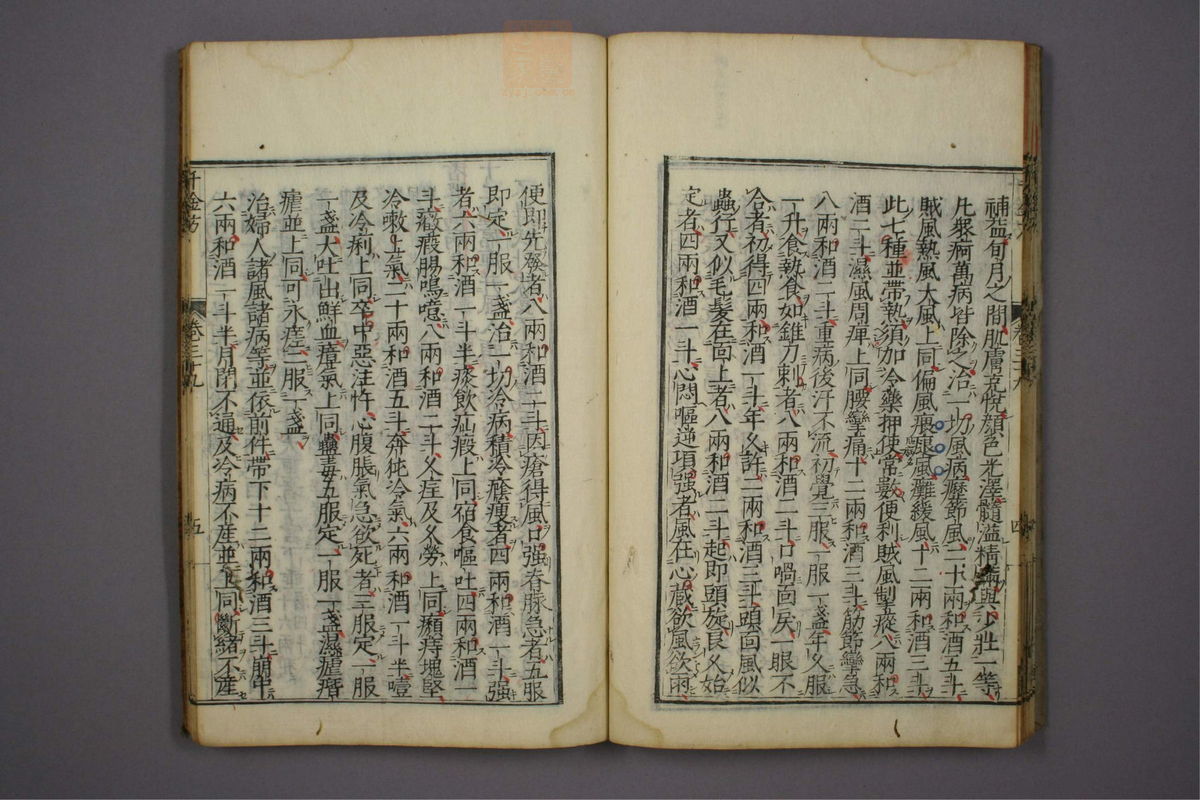 補益旬月之間肌膚充悅顏色光澤髓溢精滿與少壯一等
凡衆痾萬病皆除之治一切風病歷節風二十兩和酒五斗
賊風熱風大風上同偏風瘫風緩風十二兩和酒三斗
此七種並帶熱須加冷藥押使常數便利賊風掣瘲八兩和
酒二斗濕風周痺上同腰攣痛十二兩和酒三斗筋節攣急
八兩和酒二斗重病後汗不流初覺三服一服一盞年久服
一升食熱食如錐刀刺者八兩和酒二斗口喎面戾一眼不
合者初得四兩和酒一斗年久許二兩和酒三斗頭面風似
蟲行又似毛髮在面上者八兩和酒二斗起即頭旋良久始
定者四兩和酒一斗心悶嘔逆項強者風在心藏欲風欲雨
便即先發者八兩和酒二斗因瘡得風口強脊脉急者五服
即定一服一盞治一切冷病積冷瘦者四兩和酒一斗強
者六兩和酒一斗半痰飲疝瘕上同宿食嘔吐四兩和酒一
斗癥瘕腸鳴噫八兩和酒二斗久疰及久勞上同癩痔塊堅
冷嗽上氣二十兩和酒五斗奔㹠冷氣六兩和酒一斗半噎
及冷痢上同卒中惡注忤心腹脹氣急欲死者三服定一服
一盞大吐出鮮血瘴氣上同蠱毒五服定一服一盞濕瘧㾬
瘧並上同可永痊二服一盞
治婦人諸風諸病等並依前件帶下十二兩和酒三斗崩中
六兩和酒一斗半月閉不通及冷病不產並上同斷緒不產
千金方
卷三十九
四
五